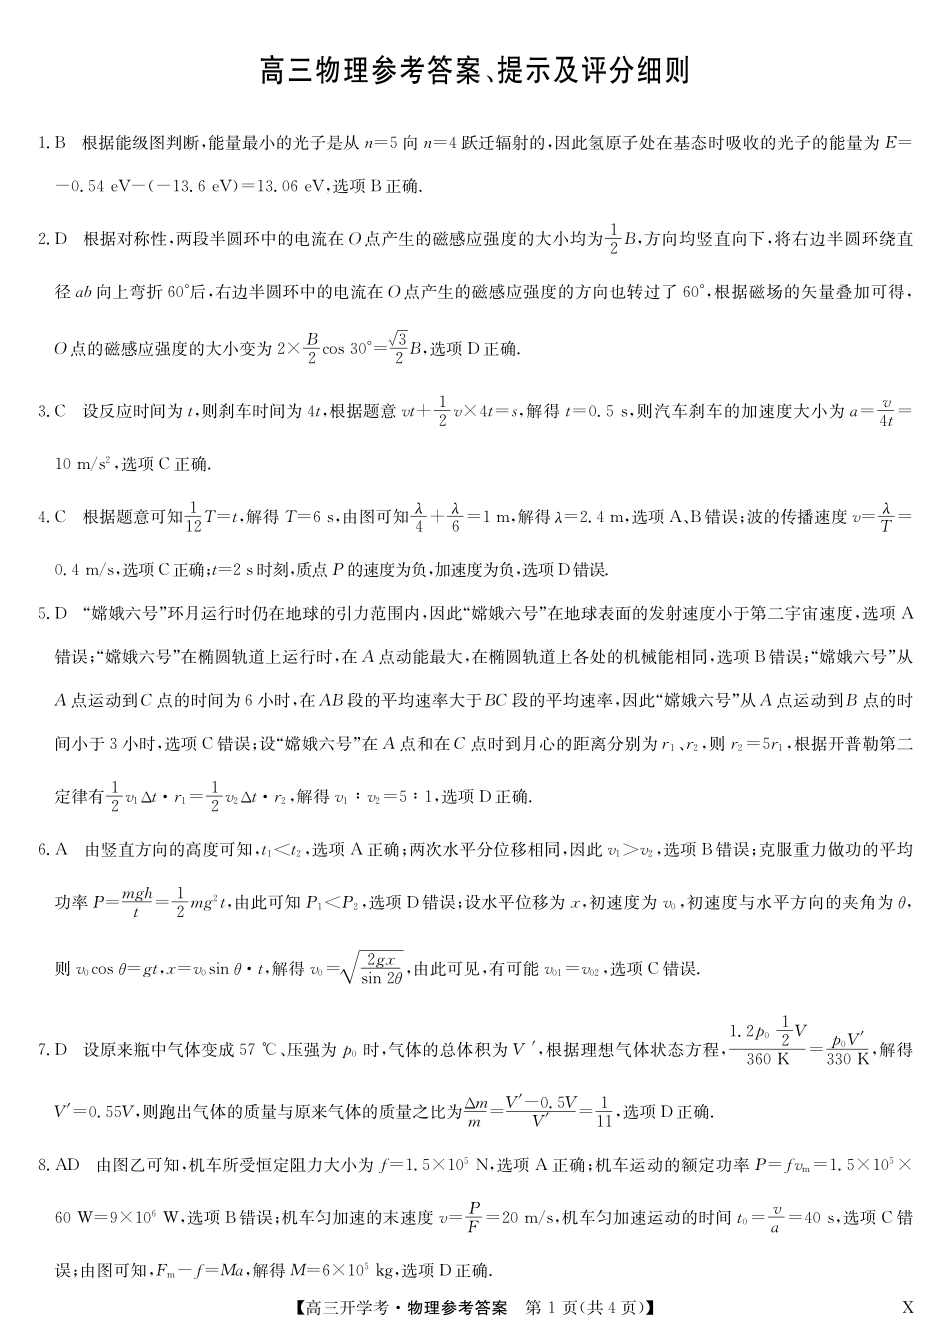 高三物理参考答案、提示及评分细则
1. B 根据能级图判断,能量最小的光子是从 n=5 向 n=4 跃迁辐射的,因此氢原子处在基态时吸收的光子的能量为 E=
-0.54 eV-(-13.6 eV)=13.06 eV,选项 B 正确.
2. D 根据对称性,两段半圆环中的电流在 O 点产生的磁感应强度的大小均为 1/2 B,方向均竖直向下,将右边半圆环绕直
径 ab 向上弯折 60°后,右边半圆环中的电流在 O 点产生的磁感应强度的方向也转过了 60°,根据磁场的矢量叠加可得,
O 点的磁感应强度的大小变为 2× B/2 cos 30°= √3/2 B,选项 D 正确.
3. C 设反应时间为 t,则刹车时间为 4t,根据题意 vt+ 1/2 v×4t=s,解得 t=0.5 s,则汽车刹车的加速度大小为 a= v/4t =
10 m/s²,选项 C 正确.
4. C 根据题意可知 1/12 T=t,解得 T=6 s,由图可知 λ/4 + λ/6 =1 m,解得 λ=2.4 m,选项 A、B 错误;波的传播速度 v= λ/T =
0.4 m/s,选项 C 正确;t=2 s 时刻,质点 P 的速度为负,加速度为负,选项 D 错误.
5. D “嫦娥六号”环月运行时仍在地球的引力范围内,因此“嫦娥六号”在地球表面的发射速度小于第二宇宙速度,选项 A
错误;“嫦娥六号”在椭圆轨道上运行时,在 A 点动能最大,在椭圆轨道上各处的机械能相同,选项 B 错误;“嫦娥六号”从
A 点运动到 C 点的时间为 6 小时,在 AB 段的平均速率大于 BC 段的平均速率,因此“嫦娥六号”从 A 点运动到 B 点的时
间小于 3 小时,选项 C 错误;设“嫦娥六号”在 A 点和在 C 点时到月心的距离分别为 r₁、r₂,则 r₂=5r₁,根据开普勒第二
定律有 1/2 v₁Δt·r₁= 1/2 v₂Δt·r₂,解得 v₁∶v₂=5∶1,选项 D 正确.
6. A 由竖直方向的高度可知,t₁<t₂,选项 A 正确;两次水平分位移相同,因此 v₁>v₂,选项 B 错误;克服重力做功的平均
功率 P= mgh/t = 1/2 mg²t,由此可知 P₁<P₂,选项 D 错误;设水平位移为 x,初速度为 v₀,初速度与水平方向的夹角为 θ,
则 v₀cos θ=gt,x=v₀sin θ·t,解得 v₀=√(2gx/sin 2θ),由此可见,有可能 v₀₁=v₀₂,选项 C 错误.
7. D 设原来瓶中气体变成 57 ℃、压强为 p₀ 时,气体的总体积为 V′,根据理想气体状态方程, 1.2p₀ 1/2 V/360 K = p₀V′/330 K,解得
V′=0.55V,则跑出气体的质量与原来气体的质量之比为 Δm/m = V′-0.5V/V′ = 1/11,选项 D 正确.
8. AD 由图乙可知,机车所受恒定阻力大小为 f=1.5×10⁵ N,选项 A 正确;机车运动的额定功率 P=fvₘ=1.5×10⁵×
60 W=9×10⁶ W,选项 B 错误;机车匀加速的末速度 v= P/F =20 m/s,机车匀加速运动的时间 t₀= v/a =40 s,选项 C 错
误;由图可知,Fₘ-f=Ma,解得 M=6×10⁵ kg,选项 D 正确.
【高三开学考·物理参考答案 第 1 页(共 4 页)】 X